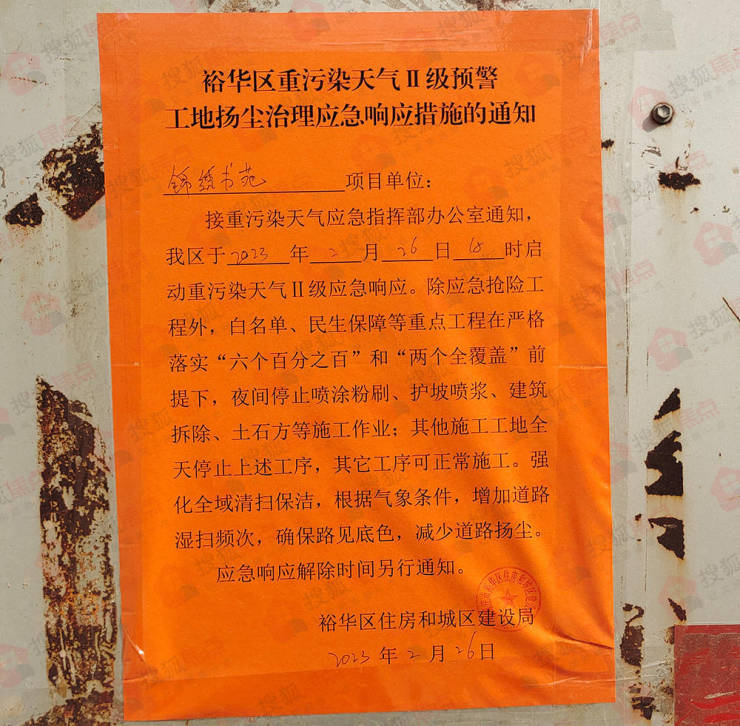 裕华区重污染天气Ⅱ级预警
工地扬尘治理应急响应措施的通知
锦绣书苑 项目单位：
接重污染天气应急指挥部办公室通知，
我区于2023年2月26日18时启
动重污染天气Ⅱ级应急响应。除应急抢险工
程外，白名单、民生保障等重点工程在严格
落实“六个百分之百”和“两个全覆盖”前
提下，夜间停止喷涂粉刷、护坡喷浆、建筑
拆除、土石方等施工作业；其他施工工地全
天停止上述工序，其它工序可正常施工。强
化全域清扫保洁，根据气象条件，增加道路
湿扫频次，确保路见底色，减少道路扬尘。
应急响应解除时间另行通知。
裕华区住房和城区建设局
2023年2月26日
搜狐焦点